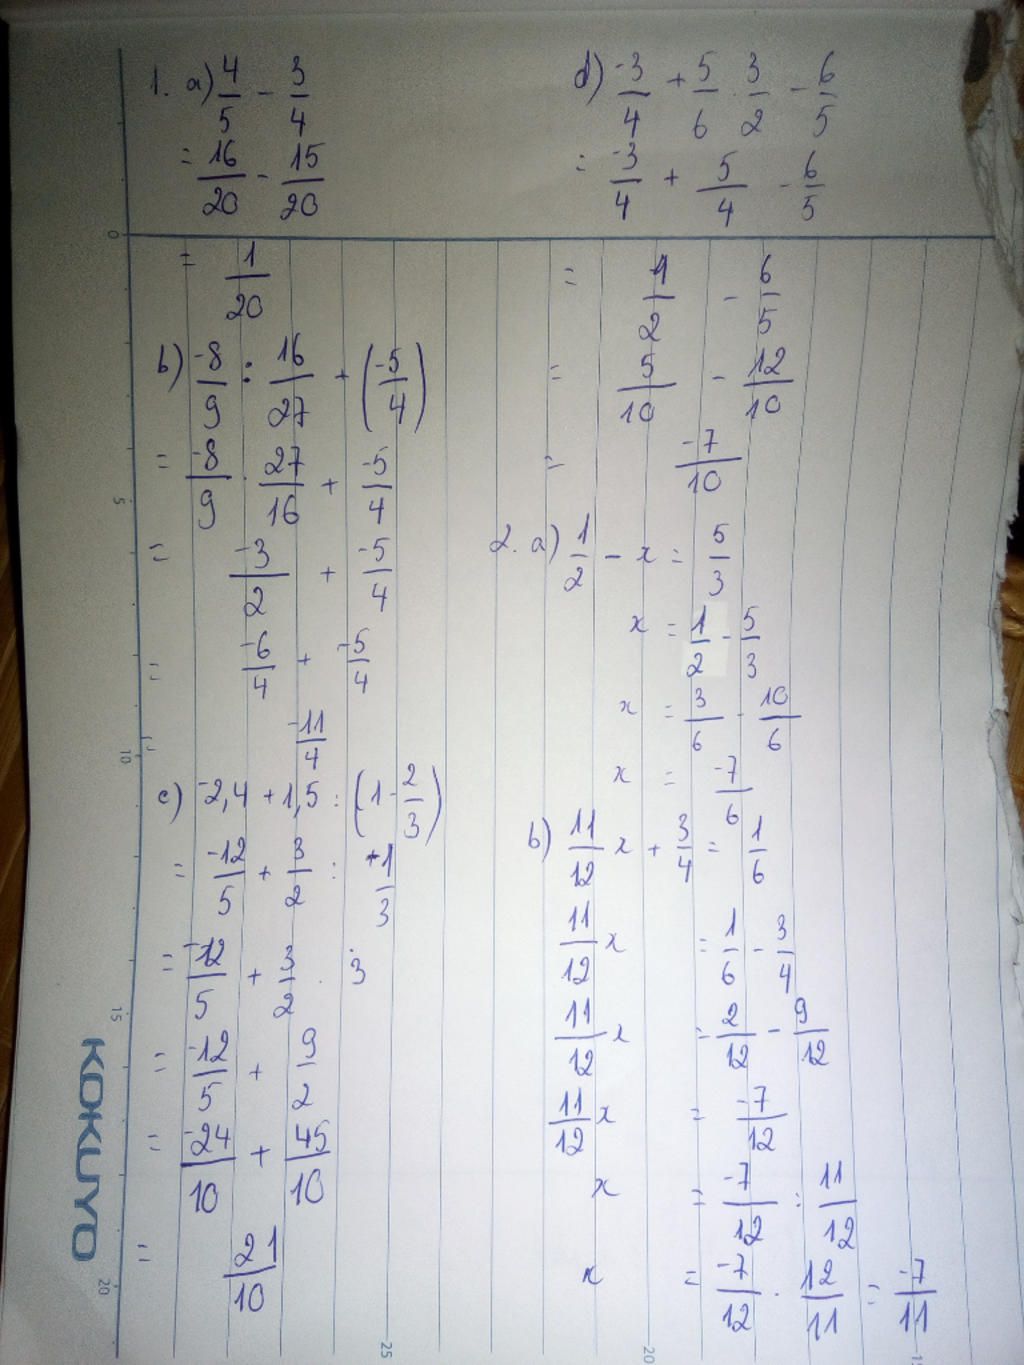 1. a) 4/5 - 3/4
= 16/20 - 15/20
= 1/20
b) -8/9 : 16/27 + (-5/4)
= -8/9 . 27/16 + -5/4
= -3/2 + -5/4
= -6/4 + -5/4
= -11/4
c) -2,4 + 1,5 : (1 - 2/3)
= -12/5 + 3/2 : +1/3
= -12/5 + 3/2 . 3
= -12/5 + 9/2
= -24/10 + 45/10
= 21/10
d) -3/4 + 5/6 . 3/2 - 6/5
= -3/4 + 5/4 - 6/5
= 1/2 - 6/5
= 5/10 - 12/10
= -7/10
2. a) 1/2 - x = 5/3
x = 1/2 - 5/3
x = 3/6 - 10/6
x = -7/6
b) 11/12 x + 3/4 = 1/6
11/12 x = 1/6 - 3/4
11/12 x = 2/12 - 9/12
11/12 x = -7/12
x = -7/12 : 11/12
x = -7/12 . 12/11 = -7/11
KOKUYO
0
5
10
15
20
25
20